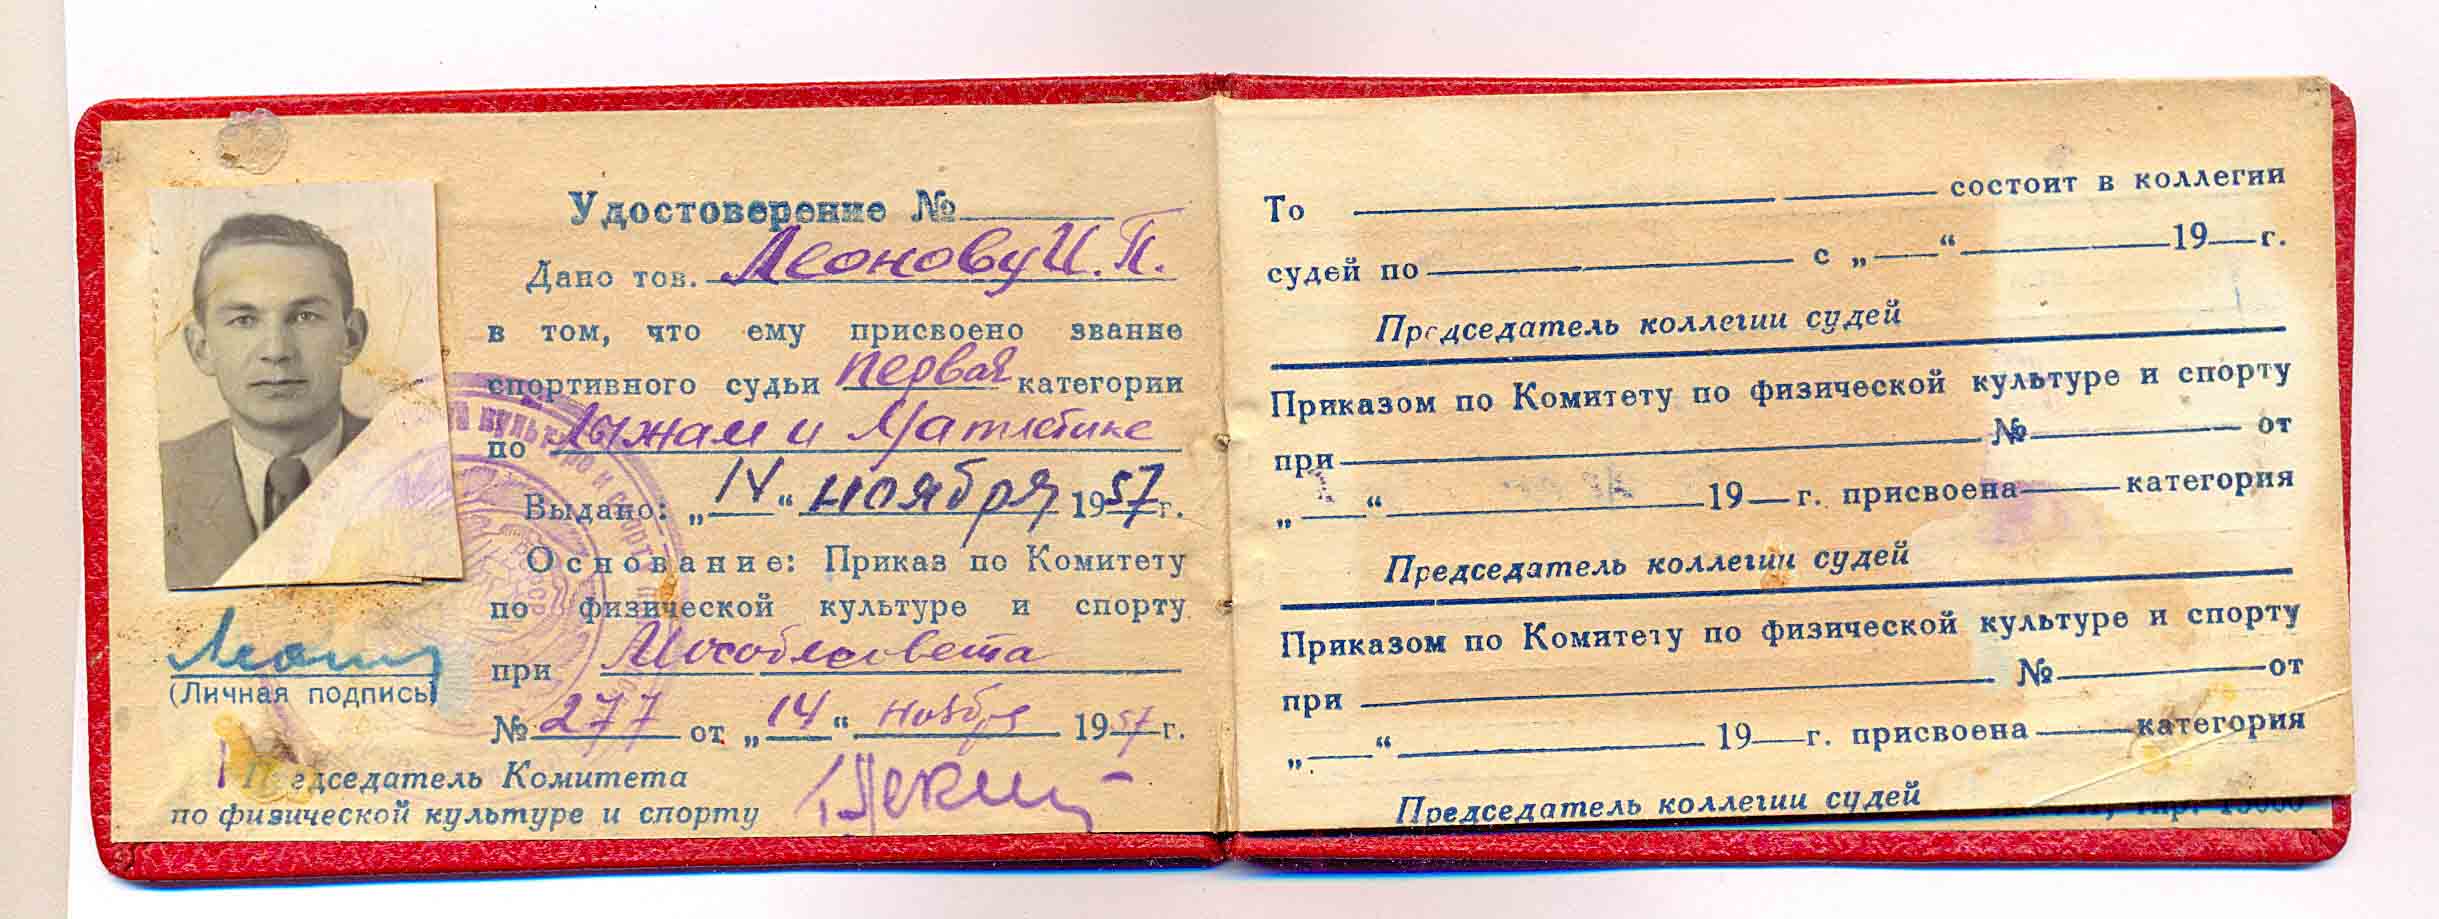 Удостоверение №
Дано тов. Леонову И. П.
в том, что ему присвоено звание
спортивного судьи первая категории
по Лыжам и л/атлетике
Выдано: „14“ ноября 1957г.
Основание: Приказ по Комитету
по физической культуре и спорту
при Мособлсовета
№ 277 от „14“ ноября 1957г.
(Личная подпись)
Председатель Комитета
по физической культуре и спорту
То состоит в коллегии
судей по с „ “ 19 г.
Председатель коллегии судей
Приказом по Комитету по физической культуре и спорту
при № от
„ “ 19 г. присвоена категория
Председатель коллегии судей
Приказом по Комитету по физической культуре и спорту
при № от
„ “ 19 г. присвоена категория
Председатель коллегии судей